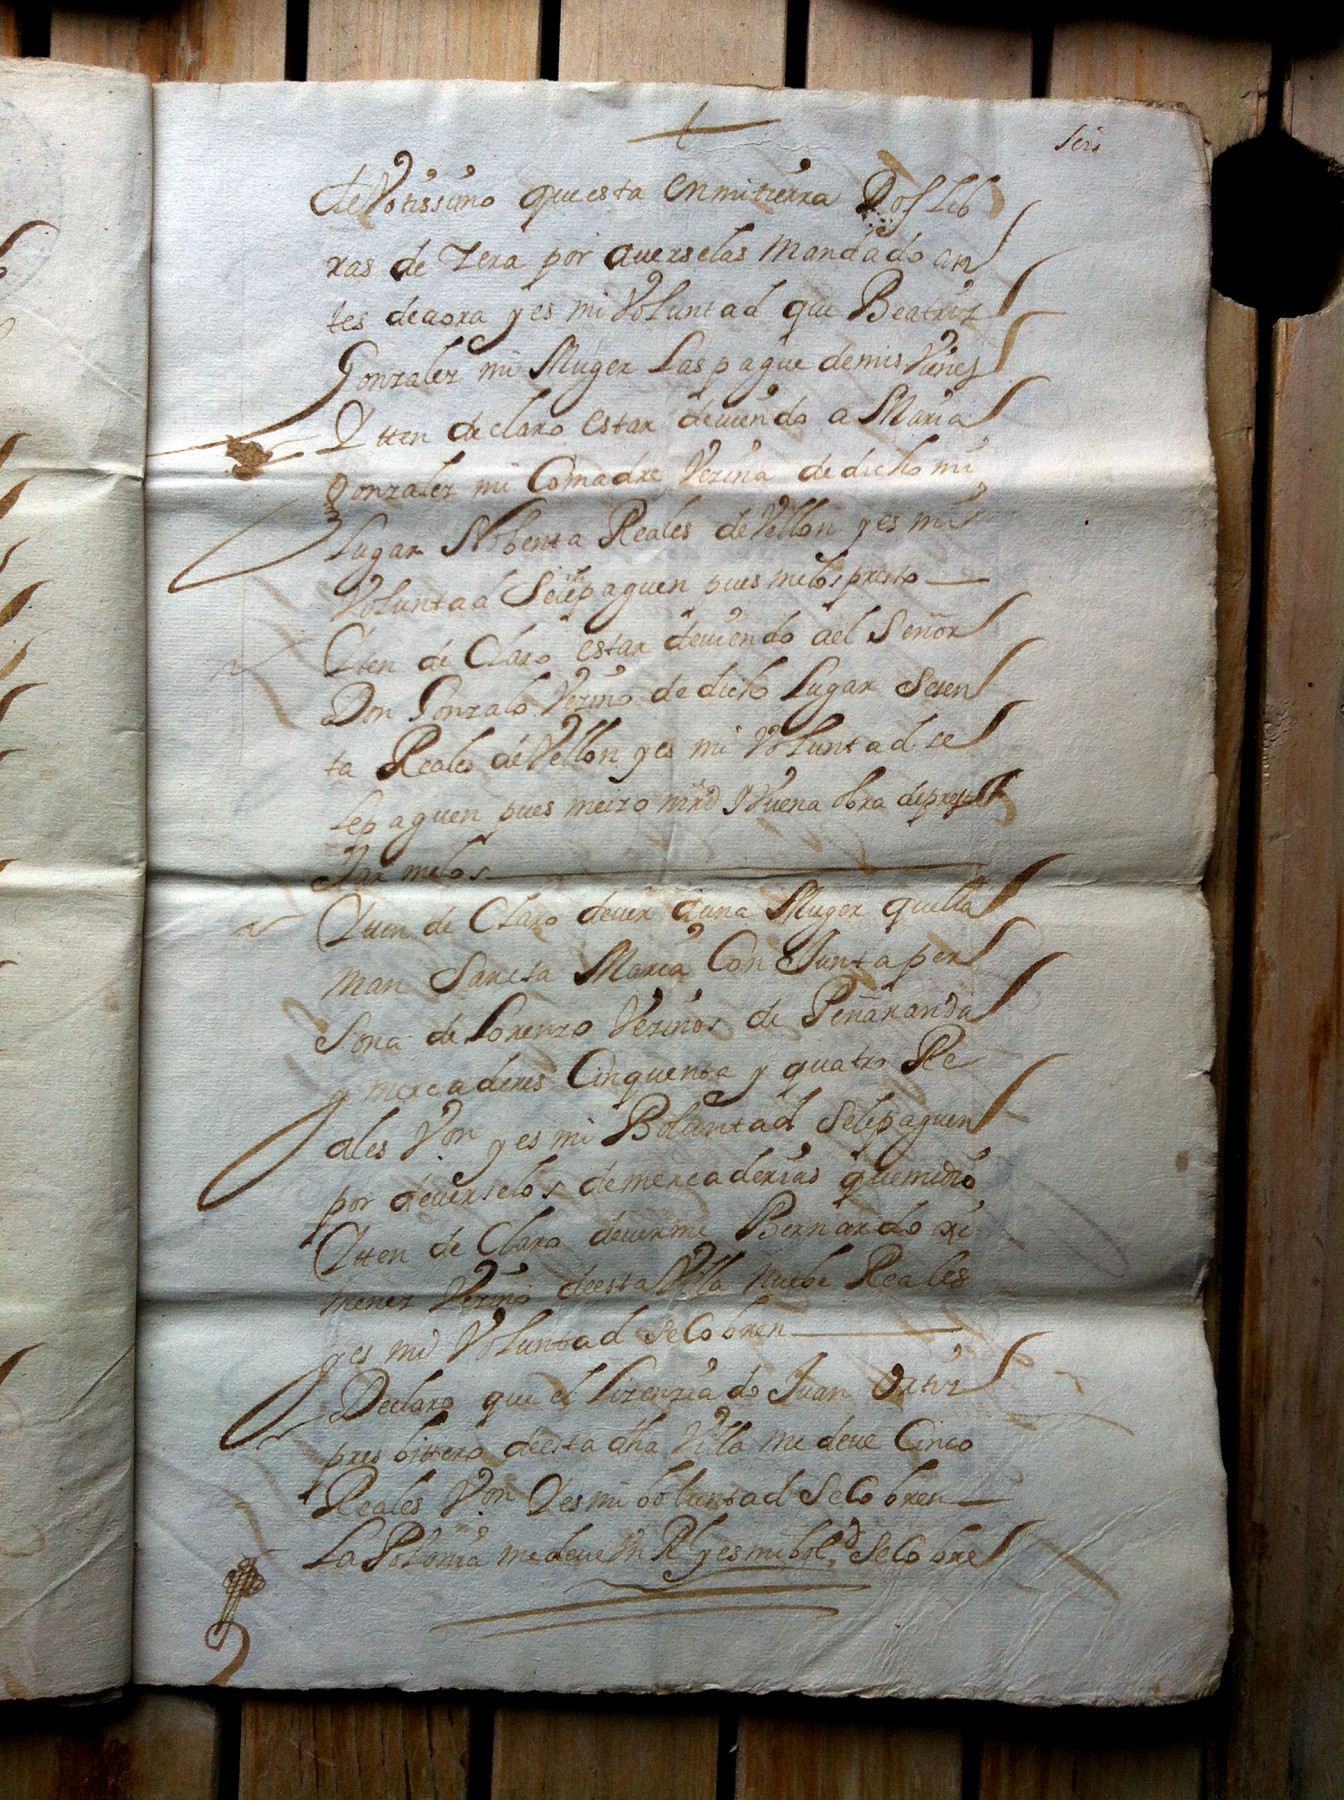 seis
devotissimo questa en mi tierra Dos lib
ras de zera por averselas mandado an
tes de aora y es mi Voluntad que Beatriz
Gonzalez mi Muger Las pague de mis Vienes
Itten declaro estar deviendo a Maria
gonzalez mi Comadre Vezina de dicho mi
Lugar Nobenta Reales de Vellon y es mi
Voluntad Se le paguen pues me los presto
Iten de Claro estar deviendo a el Señor
Don Gonzalo Vezino de dicho Lugar Seten
ta Reales de Vellon y es mi Voluntad se
le paguen pues me izo mrd Y Vuena obra de pres
tar melos
Iten de Claro dever a una Muger que lla
man Sancta Maria Con Junta per
Sona de Lorenzo Vezinos de Peñaranda
y mercaderes Cinquenta y quatro Re
ales Von y es mi Boluntad Se le paguen
por deverselos de mercaderias que me dio
Itten de Claro deverme Bernardo xi
menez Vezino de esta Villa nuebe Reales
y es mi Voluntad se Cobren
Declaro que el Lizenziado Juan Ortiz
presbittero de esta dha Villa me deve Cinco
Reales Von Y es mi boluntad Se Cobren
La Polonia me deve Un Rl y es mi bold Se Cobre